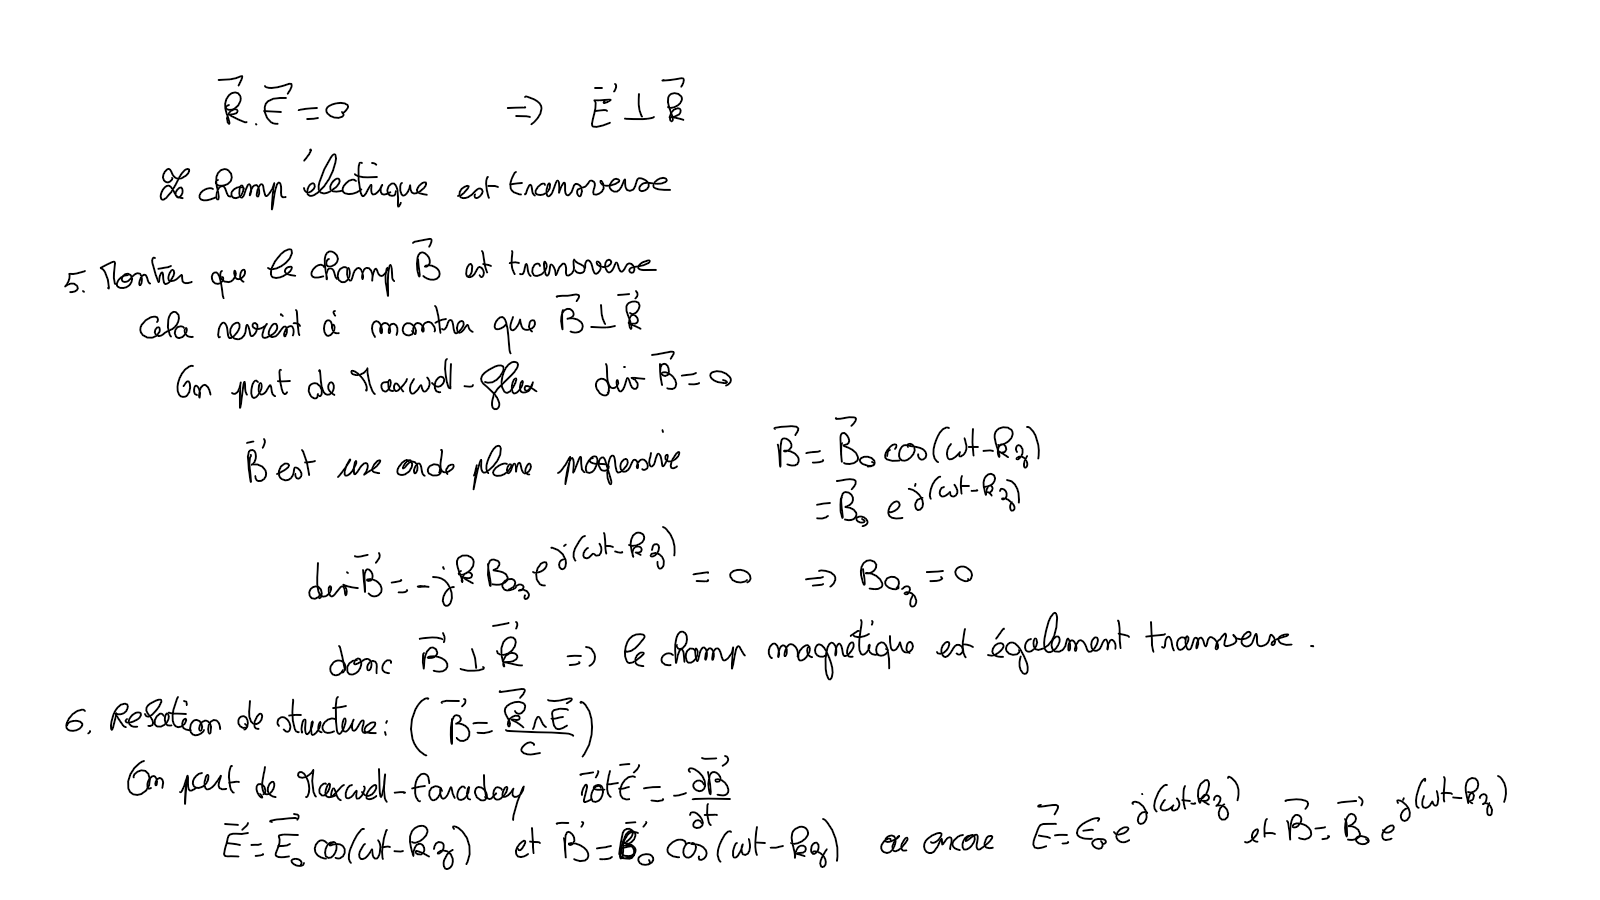 k⃗.E⃗ = 0 ⇒ E⃗ ⊥ k⃗
Le champ électrique est transverse
5. Montrer que le champ B⃗ est transverse
Cela revient à montrer que B⃗ ⊥ k⃗
On part de Maxwell-flux div B⃗ = 0
B⃗ est une onde plane progressive B⃗ = B⃗₀ cos(ωt-kz)
= B⃗₀ e^{j(ωt-kz)}
div B⃗ = -jk B_{0z} e^{j(ωt-kz)} = 0 ⇒ B_{0z} = 0
donc B⃗ ⊥ k⃗ ⇒ le champ magnétique est également transverse.
6. Relation de structure : (B⃗ = \frac{k⃗ ∧ E⃗}{c})
On part de Maxwell-Faraday r⃗ot E⃗ = -\frac{∂B⃗}{∂t}
E⃗ = E⃗₀ cos(ωt-kz) et B⃗ = B⃗₀ cos(ωt-kz) ou encore E⃗ = E₀ e^{j(ωt-kz)} et B⃗ = B⃗₀ e^{j(ωt-kz)}